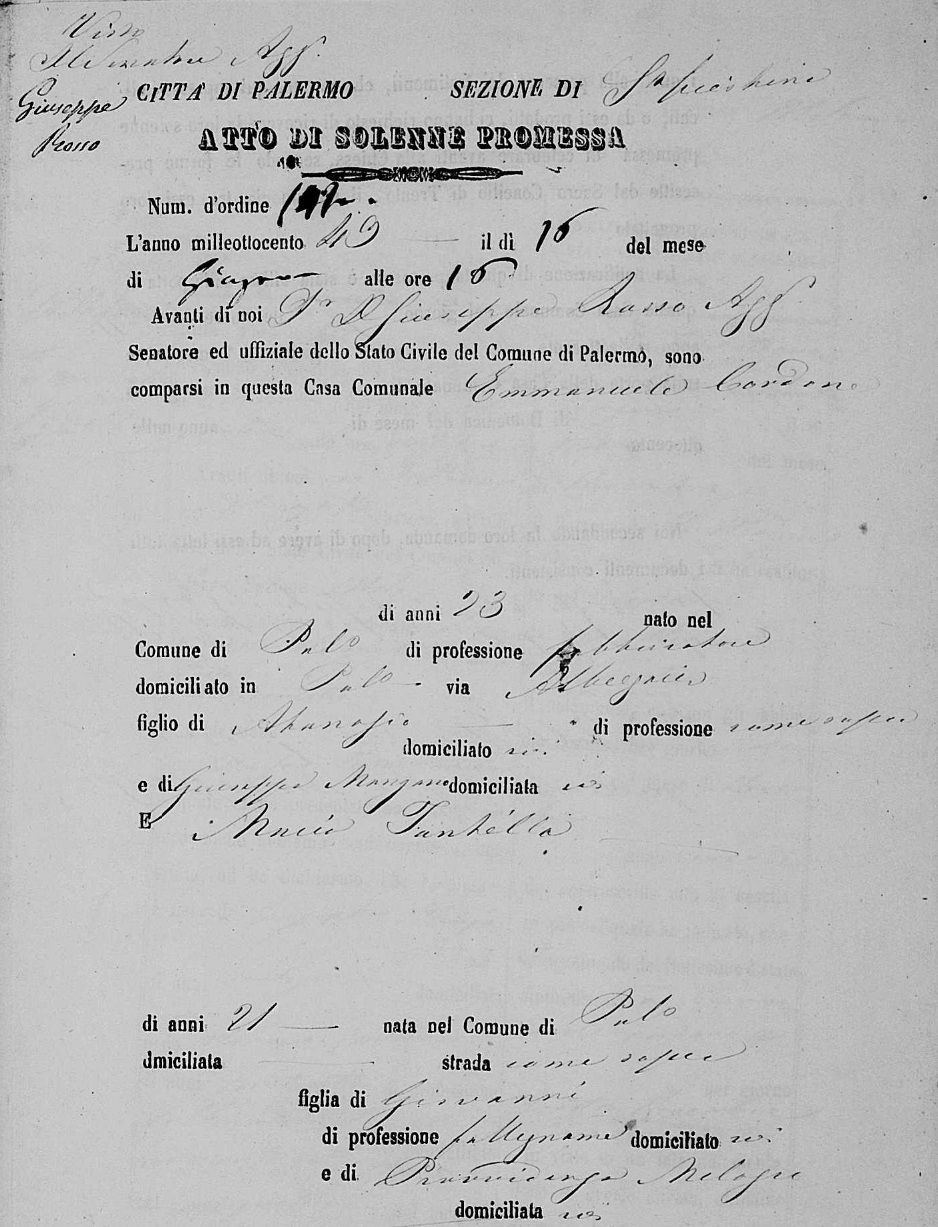 Visto
Il Senatore Agg.
Giuseppe
Rosso
CITTA' DI PALERMO SEZIONE DI
ATTO DI SOLENNE PROMESSA
Num. d'ordine
L'anno milleottocento 49 il dì 16 del mese
di Giugno alle ore 16
Avanti di noi D. Giuseppe Rosso Agg.
Senatore ed uffiziale dello Stato Civile del Comune di Palermo, sono
comparsi in questa Casa Comunale Emmanuele Cardon
di anni 23 nato nel
Comune di Palo di professione
domiciliato in Palo via Albergaria
figlio di Atanasio di professione come sopra
domiciliato ivi
e di Giuseppa Mangano domiciliata ivi
E Maria Tantillo
di anni 21 nata nel Comune di Palo
dmiciliata strada come sopra
figlia di Giovanni
di professione falegname domiciliato ivi
e di Provvidenza
domiciliata ivi